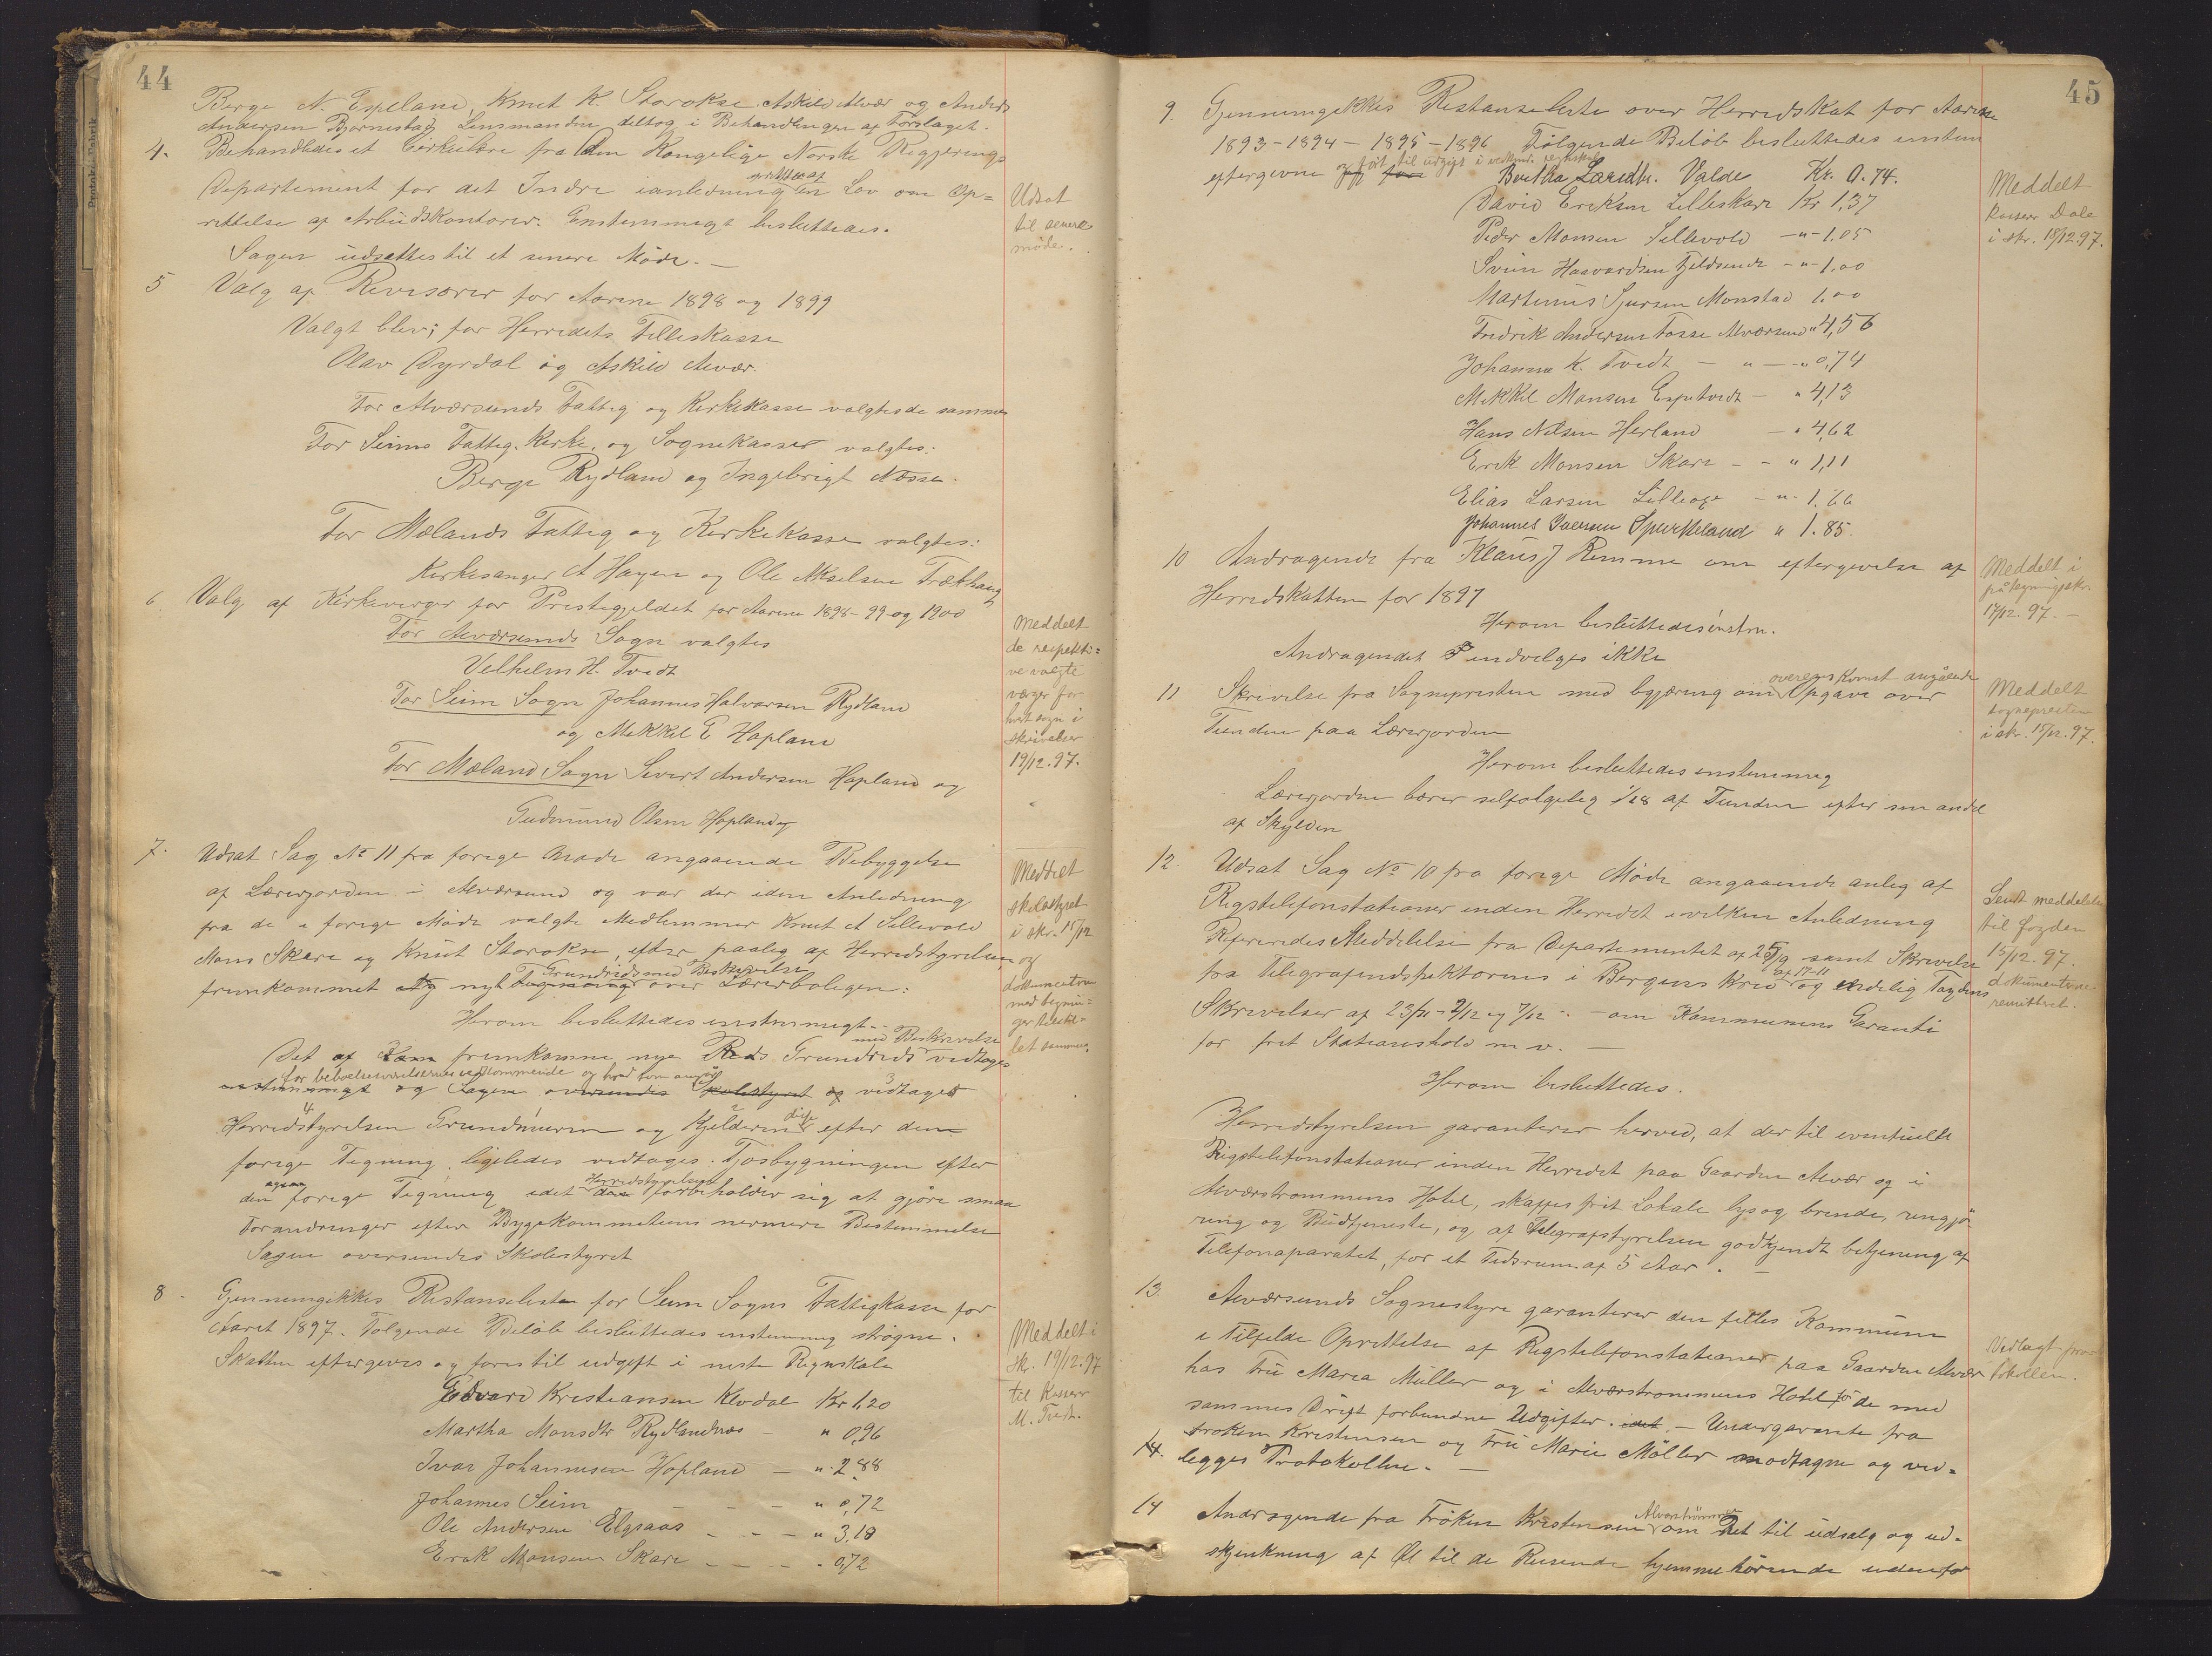 44
Berge N. Espeland, Knut K. Storokse. Askild Alvær og Anders
Andersen Bjørnestad Lensmanden deltog i Behandlingen af Forslaget.
4. Behandledes et Cirkulære fra den Kongelige Norske Regjerings
Departement for det Indre ianledning en Lov om Op=
rettelse af Arbeidskontorer. Enstemmigt besluttedes.
Sagen udsættes til et senere Møde. —
Udsat
til senere
møde.
5 Valg af Revisorer for Aarene 1898 og 1899
Valgt blev; for Herredets Felleskasse
Olav Dyrdal og Askild Alvær.
For Alværsunds Fattig og Kirkekasse valgtes de samme
For Seims Fattig. Kirke, og Sognekasser valgtes:
Berge Rydland og Ingebrigt Næsse.
For Mælands Fattig og Kirkekasse valgtes:
Kirkesanger A Hagen og Ole Akselsen Trækhaug
6. Valg af Kirkeverger for Prestegjeldet for Aarene 1898-99 og 1900
For Alværsunds Sogn valgtes
Velhelm H. Tvedt
For Seim Sogn Johannes Halvorsen Rydland
og Mikkel E Hopland
For Mæland Sogn Sivert Andersen Hopland og
Gudmund Olsen Hopland
Meddelt
de respekti=
ve valgte
værger for
hvert sogn i
skrivelser
19/12.97.
7. Udsat Sag No 11 fra forrige Møde angaaende Bebyggelse
af Lærerjorden i Alværsund og var der iden Anledning
fra de i forrige Møde valgte Medlemmer Knut A Sellevold
Mons Skare og Knut Storokse, efter paalæg af Herredstyrelsen
Grundrids med Beskrivelse
fremkommet ny nyt Tegning over Lærerboligen:
Herom besluttedes enstemmigt
med Beskrivelse
Det af fremkomne nye Grundrids vedtages
for beboelsesværelsernes vedkommende og hvad som angår
enstemmigt og Sagen oversendes Skolestyret og vedtager
Herredstyrelsen Grundmuren og Kjelderen disse efter den
forige Tegning ligeledes vedtages. Fjøsbygningen efter
den ogsaa forige Tegning idet Herredstyrelsen forbeholder sig at gjøre smaa
Forandringer efter Bygekommiteens nermere Bestemmelse
Sagen oversendes Skolestyret
Meddelt
skolestyret
i skr. 15/12
og
dokumenterne
med tegnin=
ger tilstil=
let samme.
8. Gjennemgikkes Restanselisten for Seim Sogns Fattigkasse for
Aaret 1897. Følgende Beløb besluttedes enstemmig strøgne.
Skatten eftergives og føres til udgift i neste Regnskab
Edvard Kristiansen Kvodal Kr 1,20
Martha Monsdtr Rydlandnæs — " 0,96
Ivar Johannesen Hopland — " 2.88
Johannes Seim — — — " 0,72
Ole Andersen Elgsaas — — — " 3,18
Erik Monsen Skare — — — - 0,72
Meddelt i
skr. 19/12.97
til Kasser
M. Tvedt.
45
9. Gjennemgikkes Restanseliste over Herredskat for Aarene
1893 - 1894 - 1895 - 1896 Følgende Beløb besluttedes enstem
ført til udgift i vedkom. regnskab
eftergivne og Bertha Larsdtr. Valde Kr. 0.74.
David Eriksen Lilleskare Kr 1,37
Peder Monsen Sellevold -"- 1.05
Svein Haavardsen Fjeldsende -"- 1.00
Martinus Sjursen Monstad 1.00
Fredrik Andersen Fosse Alværsund " 4,56
Johanna K. Tvedt — " — " 0,74
Mikkel Monsen Espetvedt — " 4,13
Hans Nilsen Herland — " 4,62
Erik Monsen Skare - - " 1,11
Elias Larsen Lilleoxe -"- 1.66
Johannes Iversen Spurkeland " 1.85.
Meddelt
Kasserer Dale
i skr. 18/12.97.
10 Andragende fra Klaus J Remme om eftergivelse af
Herredskatten for 1897
Herom besluttedes enstm.
Andragendet indvilges ikke
Meddelt i
påtegningsskr.
17/12.97. —
11 Skrivelse fra Sognepresten med begjæring om overenskomst angående Opgave over
Tienden paa Lærerjorden
Herom besluttedes enstemmig
Lærerjorden bærer selfølgelig 1/28 af Tienden efter sin andel
af Skylden
Meddelt
sognepresten
i skr. 15/12.97.
12 Udsat Sag No 10 fra forige Møde angaaende anleg af
Rigstelefonstationer inden Herredet i vilken Anledning
Refereredes Meddelelse fra Departementet af 25/9 samt Skrivelse
fra Telegrafindspektørens i Bergens Kreds af 17-11 og endelig Fogdens
Skrivelser af 23/11 - 2/12 og 7/12 - om Kommunens Garanti
for frit Stationshold m v. —
Herom besluttedes.
Herredstyrelsen garanterer herved, at der til eventuelle
Rigstelefonstationer inden Herredet paa Gaarden Alvær og i
Alværstrømmens Hotel, skaffes frit Lokale lys og brende, rengjø
ring og Budtjeneste, og af Telegrafstyrelsen godkjendt betjening af
Telefonaparatet, for et Tidsrum af 5 Aar. —
Sendt meddelelse
til fogden
15/12.97.
dokumenterne
remitteret.
13. Alværsunds Sognestyre garanterer den felles Kommune
i Tilfelde Oprettelse af Rigstelefonstationer paa Gaarden Alvær
hos Fru Maria Müller og i Alværstrømmens Hotel for de med
sammes Drift forbundne Udgifter. idet — Undergarante fra
Frøken Kristensen og Fru Marie Müller modtagne og ved=
14. legges Protokollen. —
Vedlagt pro
tokollen.
14 Andragende fra Frøken Kristensen Alverstrømmen om Ret til udsalg og ud=
skjenkning af Øl til de Reisende hjemmehørende udenfor